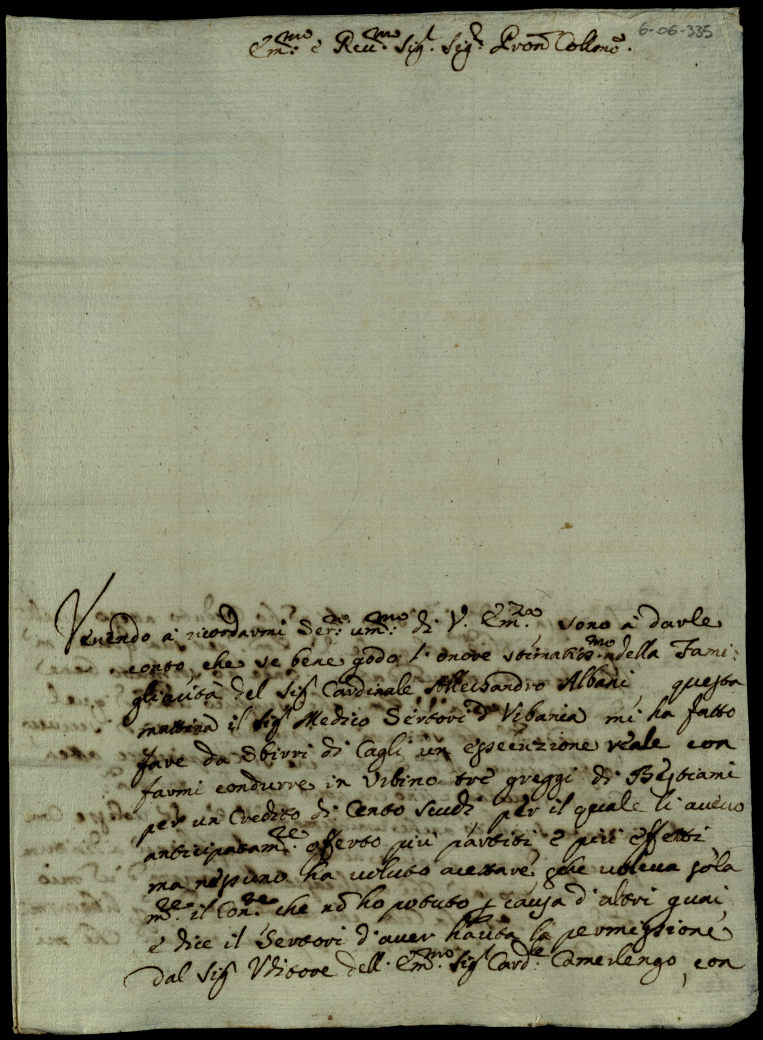 6-06-335
Em.mo e Reu.mo Sig.r Sig.r Pron Collmo.
Venendo a ricordarmi Ser.re um.mo di V. Em.za sono a darle
conto, che se bene godo l'onore stimatis.mo della Fami:
gliarità del Sig.r Cardinale Allessandro Albani, questa
mattina il Sig.r Medico Sertori d'Vrbania mi ha fatto
fare da Sbirri di Cagli un essecuzione reale con
farmi condurre in Urbino tre greggi di Bestiami
per un Credito di Cento Scudi per il quale li avevo
anticipatam.te offerto più partiti e più effetti
ma nessuno ha voluto accettare, che voleva sola
m.te il Con.te che nõ ho potuto p causa d'altri guai,
e dice il Sertori d'aver hauta la permissione
dal Sig.r Vditore dell'Em.mo Sig.r Card.le Camerlengo, con